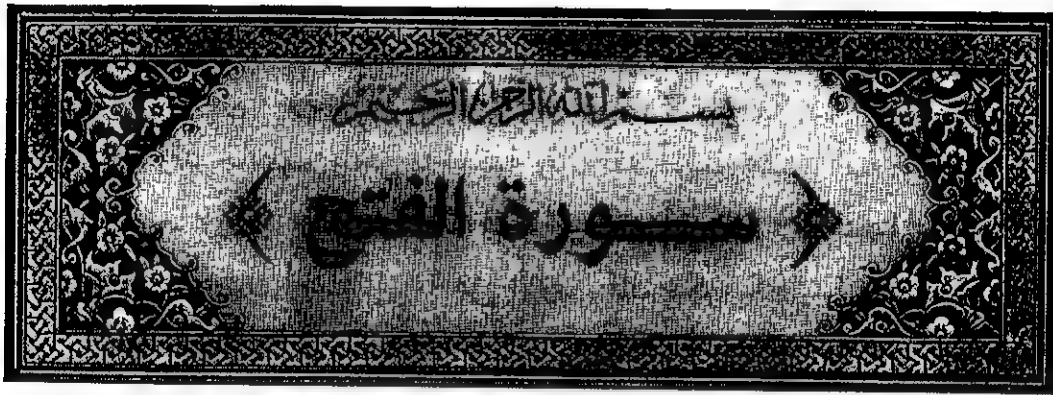 بسم الله الرحمن الرحيم
﴿ سورة الفتح ﴾